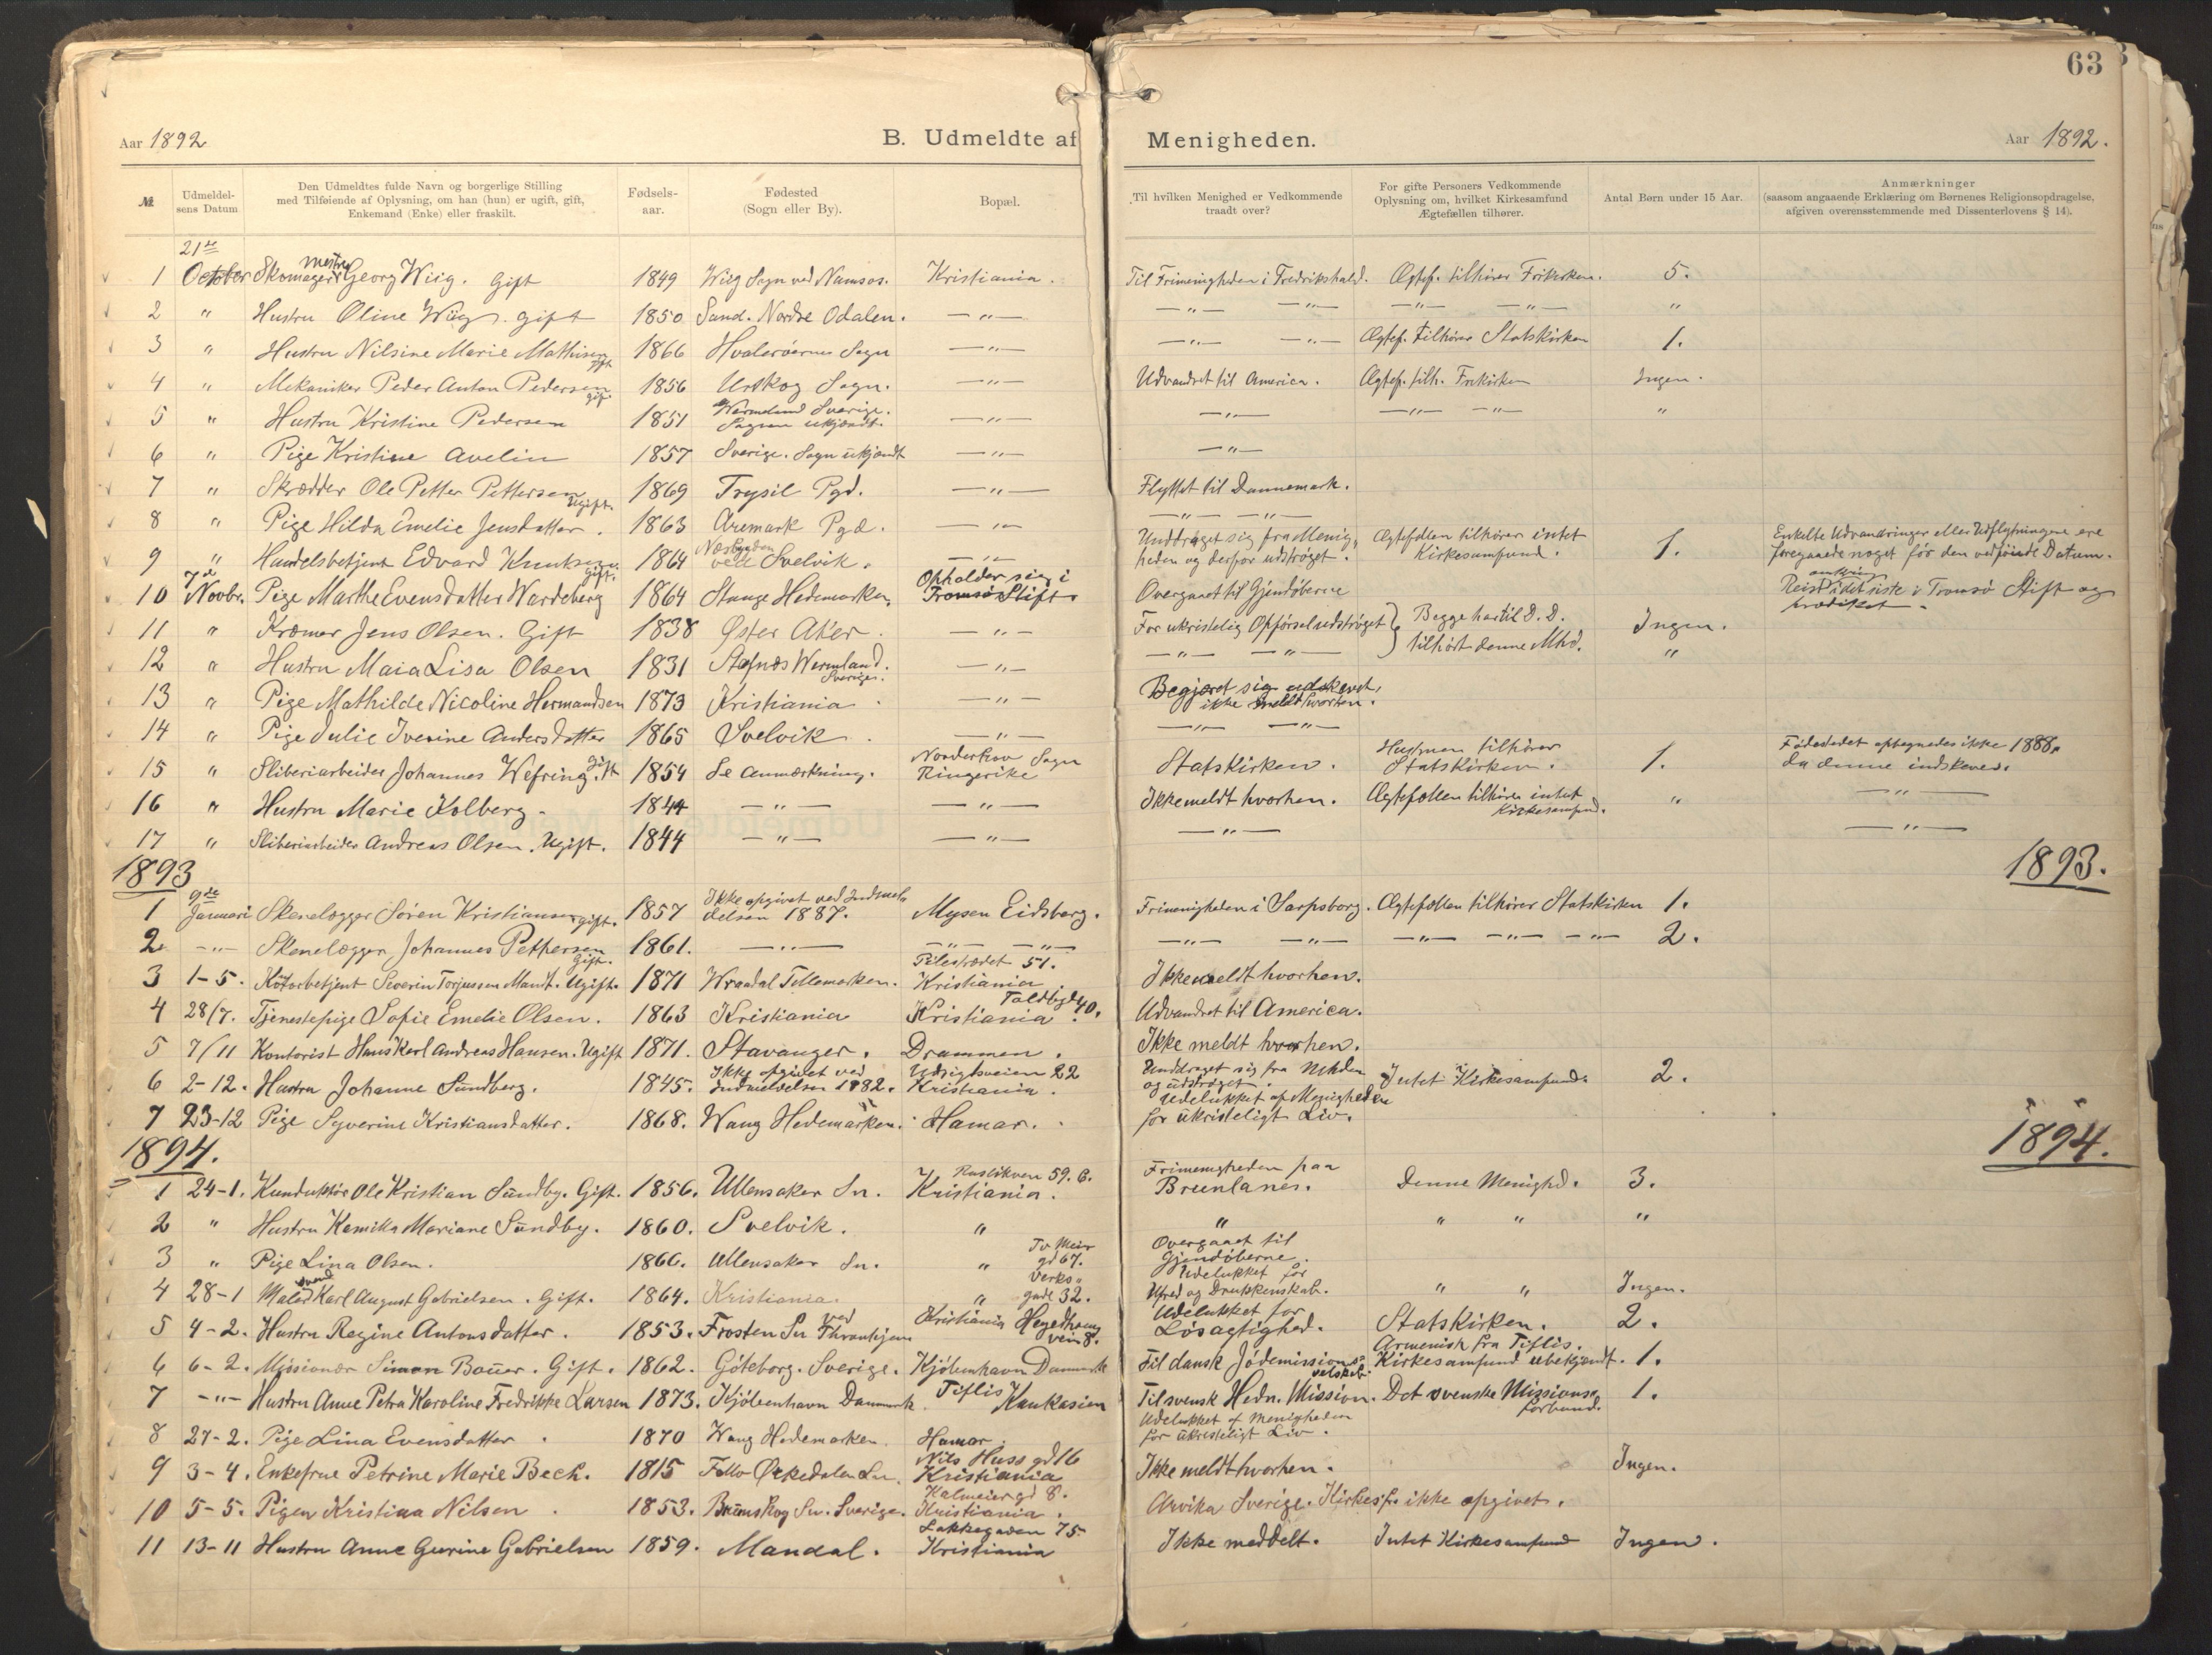 63
Aar 1892 B. Udmeldte af Menigheden. Aar 1892.
№ Udmeldelsens Datum Den Udmeldtes fulde Navn og borgerlige Stilling med Tilføiende af Oplysning, om han (hun) er ugift, gift, Enkemand (Enke) eller fraskilt. Fødselsaar. Fødested (Sogn eller By). Bopæl. Til hvilken Menighed er Vedkommende traadt over? For gifte Personers Vedkommende Oplysning om, hvilket Kirkesamfund Ægtefællen tilhører. Antal Børn under 15 Aar. Anmærkninger (saasom angaaende Erklæring om Børnenes Religionsopdragelse, afgiven overensstemmende med Dissenterlovens § 14).
1 21de October Skomagermester Georg Wiig. Gift 1849 Wiig Sogn ved Namsos. Kristiania. Til Frimenigheden i Fredrikshald. Ægtef. tilhører Frikirken. 5.
2 " Hustru Oline Wiig. gift 1850 Sand. Nordre Odalen. —"— —"— —"— —"— —"— "
3 " Hustru Nilsine Marie Mathisen gift 1866 Hvalerøernes Sogn —"— —"— —"— Ægtef. tilhører Statskirken 1.
4 " Mekaniker Peder Anton Pedersen gift. 1856 Urskog Sogn. —"— Udvandret til America. Ægtef. tilh. Frikirken Ingen.
5 " Hustru Kristine Pedersen 1851 Wermeland Sverige. Sognen ukjendt. —"— —"— —"— —"— "
6 " Pige Kristine Avelin 1857 Sverige. Sogn ukjendt —"— —"—
7 " Skrædder Ole Petter Pettersen Ugift. 1869 Trysil Pgd. —"— Flyttet til Dannemark.
8 " Pige Hilda Emelie Jensdatter. 1863 Aremark Pgd. —"— —"— —"—
9 " Handelsbetjent Edvard Knutsen gift. 1864 ved Svelvik. —"— Unddraget sig fra Menigheden og derfor udstrøget. Ægtefællen tilhører intet Kirkesamfund. 1. Enkelte Udvandringer eller Udflytninger ere foregaaede noget før den vedføiede Datum.
10 7de Novbr. Pige Marthe Evensdatter Wardeberg 1864 Stange Hedemarken, Opholder sig i Tromsø Stift. Overgaaet til Gjendøberne Reist omkring i det siste i Tromsø Stift og prædiket.
11 " Kræmer Jens Olsen. Gift 1838 Øster Aker. —"— For ukristelig Opførsel udstrøget Begge har til D. D. tilhørt denne Mhd. Ingen.
12 " Hustru Maia Lisa Olsen 1831 Stafnæs Wermland. Sverige. —"— —"— —"— "
13 " Pige Mathilde Nicoline Hermandsen 1873 Kristiania. —"— Begjæret sig udskrevet, ikke meldt hvorhen.
14 " Pige Julie Iverine Andersdatter 1865 Svelvik. —"— —"— —"—
15 " Sliberiarbeider Johannes Wefring. Gift 1854 Se Anmærkning. Norderhov Sogn Ringerike Statskirken. Hustruen tilhører Statskirken. 1. Fødestedet optegnedes ikke 1888, da denne indskeves.
16 " Hustru Marie Kolberg. 1844 —"— —"— Ikke meldt hvorhen. Ægtefællen tilhører intet Kirkesamfund. " —"—
17 " Sliberiarbeider Andreas Olsen. Ugift. 1844 —"— —"— —"— —"—
1893 1893.
1 9de Januari Skenelægger Søren Kristiansen gift. 1857 Ikke opgivet ved Indmeldelsen 1887. Mysen Eidsberg. Frimenigheden i Sarpsborg. Ægtefællen tilhører Statskirken 1.
2 —"— Skenelægger Johannes Pettersen Gift. 1861. —"— —"— —"— —"— —"— —"— —"— —"— 2.
3 1-5. Severin Torjussen Mandt. Ugift. 1871 Wraadal Tellemarken. Pilestrædet 51. Kristiania Ikke meldt hvorhen.
4 28/7. Tjenestepige Sofie Emelie Olsen. 1863 Kristiania Toldbgd 40. Kristiania. Udvandret til America.
5 7/11 Kontorist Hans Karl Andreas Hansen. Ugift 1871. Stavanger. Drammen. Ikke meldt hvorhen.
6 2-12. Hustru Johanne Sundberg. 1845. Ikke opgivet ved Indmeldelsen 1882. Udsigtsveien 22 Kristiania. Unddraget sig fra Mhden og udstrøget. Intet Kirkesamfund. 2.
7 23-12 Pige Syverine Kristiansdatter. 1868. Wang Hedemarken. Hamar. Udelukket af Menigheden for ukristeligt Liv.
1894. 1894.
1 24-1. Kunduktør Ole Kristian Sundby. Gift. 1856. Ullensaker Sn. 59. B. Kristiania. Frimenigheden paa Brunlanes. Denne Menighd. 3.
2 " Hustru Kamilla Mariane Sundby. 1860. Svelvik. " " " " "
3 " Pige Lina Olsen. 1866. Ullensaker Sn. " Tv Meir gd 67. Overgaaet til Gjendøberne.
4 28-1 Malersvend Karl August Gabrielsen. Gift. 1864. Kristiania. " Verksgade 32. Udelukket for Ufred og Drukkenskab. " " Ingen.
5 4-2. Hustru Regine Antonsdatter. 1853. Frosten Sn ved Throndhjem Kristiania Hegdhaugvein 8. Udelukket for Løsagtighed. Statskirken. 2.
6 6-2. Missionær Simon Bauer. Gift. 1862. Göteborg. Sverige. Kjøbenhavn Danmark Til dansk Jødemissionsselskab. Armenisk fra Tiflis. Kirkesamfund ubekjendt. 1.
7 —"— Hustru Anne Petra Karoline Fredrikke Larsen 1873. Kjøbenhavn Danmark. Tiflis Kaukasien Til svensk Hedn. Mission. Det svenske Missionsforbund. 1.
8 27-2. Pige Lina Evensdatter. 1870 Wang Hedemarken. Hamar. Udelukket af Menigheden for ukristeligt Liv.
9 3-4. Enkefrue Petrine Marie Bech. 1815 Ørkedalen Sn. Nils Huss gd 16 Kristiania Ikke meldt hvorhen. Ingen.
10 5-5. Pigen Kristina Nilsen. 1853. Brunskog Sn. Sverige. Kalmeiergd 8. Kristiania. Arvika Sverige. Kirkesf. ikke opgivet.
11 13-11 Hustru Anne Gurine Gabrielsen 1859. Mandal. Lakkegaden 75. Kristiania Ikke meddelt. Intet Kirkesamfund Ingen.